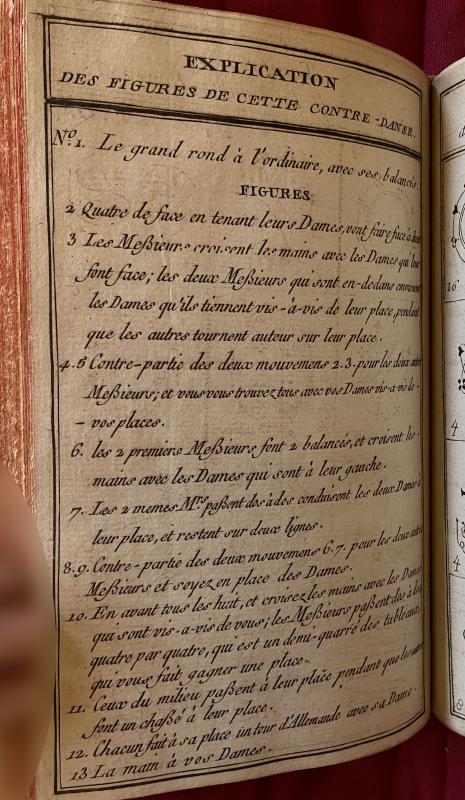 EXPLICATION
DES FIGURES DE CETTE CONTRE-DANSE.
Nº.1. Le grand rond à l'ordinaire, avec ses balancés.
FIGURES
2 Quatre de face en tenant leurs Dames, vont faire face à
3 Les Meßieurs croisent les mains avec les Dames qui leur
font face; les deux Meßieurs qui sont en-dedans
les Dames qu'ils tiennent vis-à-vis de leur place, pendant
que les autres tournent autour sur leur place.
4.5 Contre-partie des deux mouvemens 2.3. pour les deux autres
Meßieurs; et vous vous trouvez tous avec vos Dames vis-a-vis de-
- vos places.
6. les 2 premiers Meßieurs font 2 balancés, et croisent les
mains avec les Dames qui sont à leur gauche.
7. Les 2 memes Mrs paßent dos à dos conduisent les deux Dames à
leur place, et restent sur deux lignes.
8.9. Contre-partie des deux mouvemens 6.7. pour les deux autres
Meßieurs et soyez en place des Dames.
10. En avant tous les huit, et croisez les mains avec les Dames
qui sont vis-a-vis de vous; les Meßieurs paßent dos à dos,
quatre par quatre, qui est un demi-quarré des tableaux,
qui vous fait gagner une place.
11. Ceux du milieu paßent à leur place pendant que les autres
font un chaßé à leur place.
12. Chacun fait à sa place un tour d'Allemande avec sa Dame.
13 La main à vos Dames.
16
4
4
8